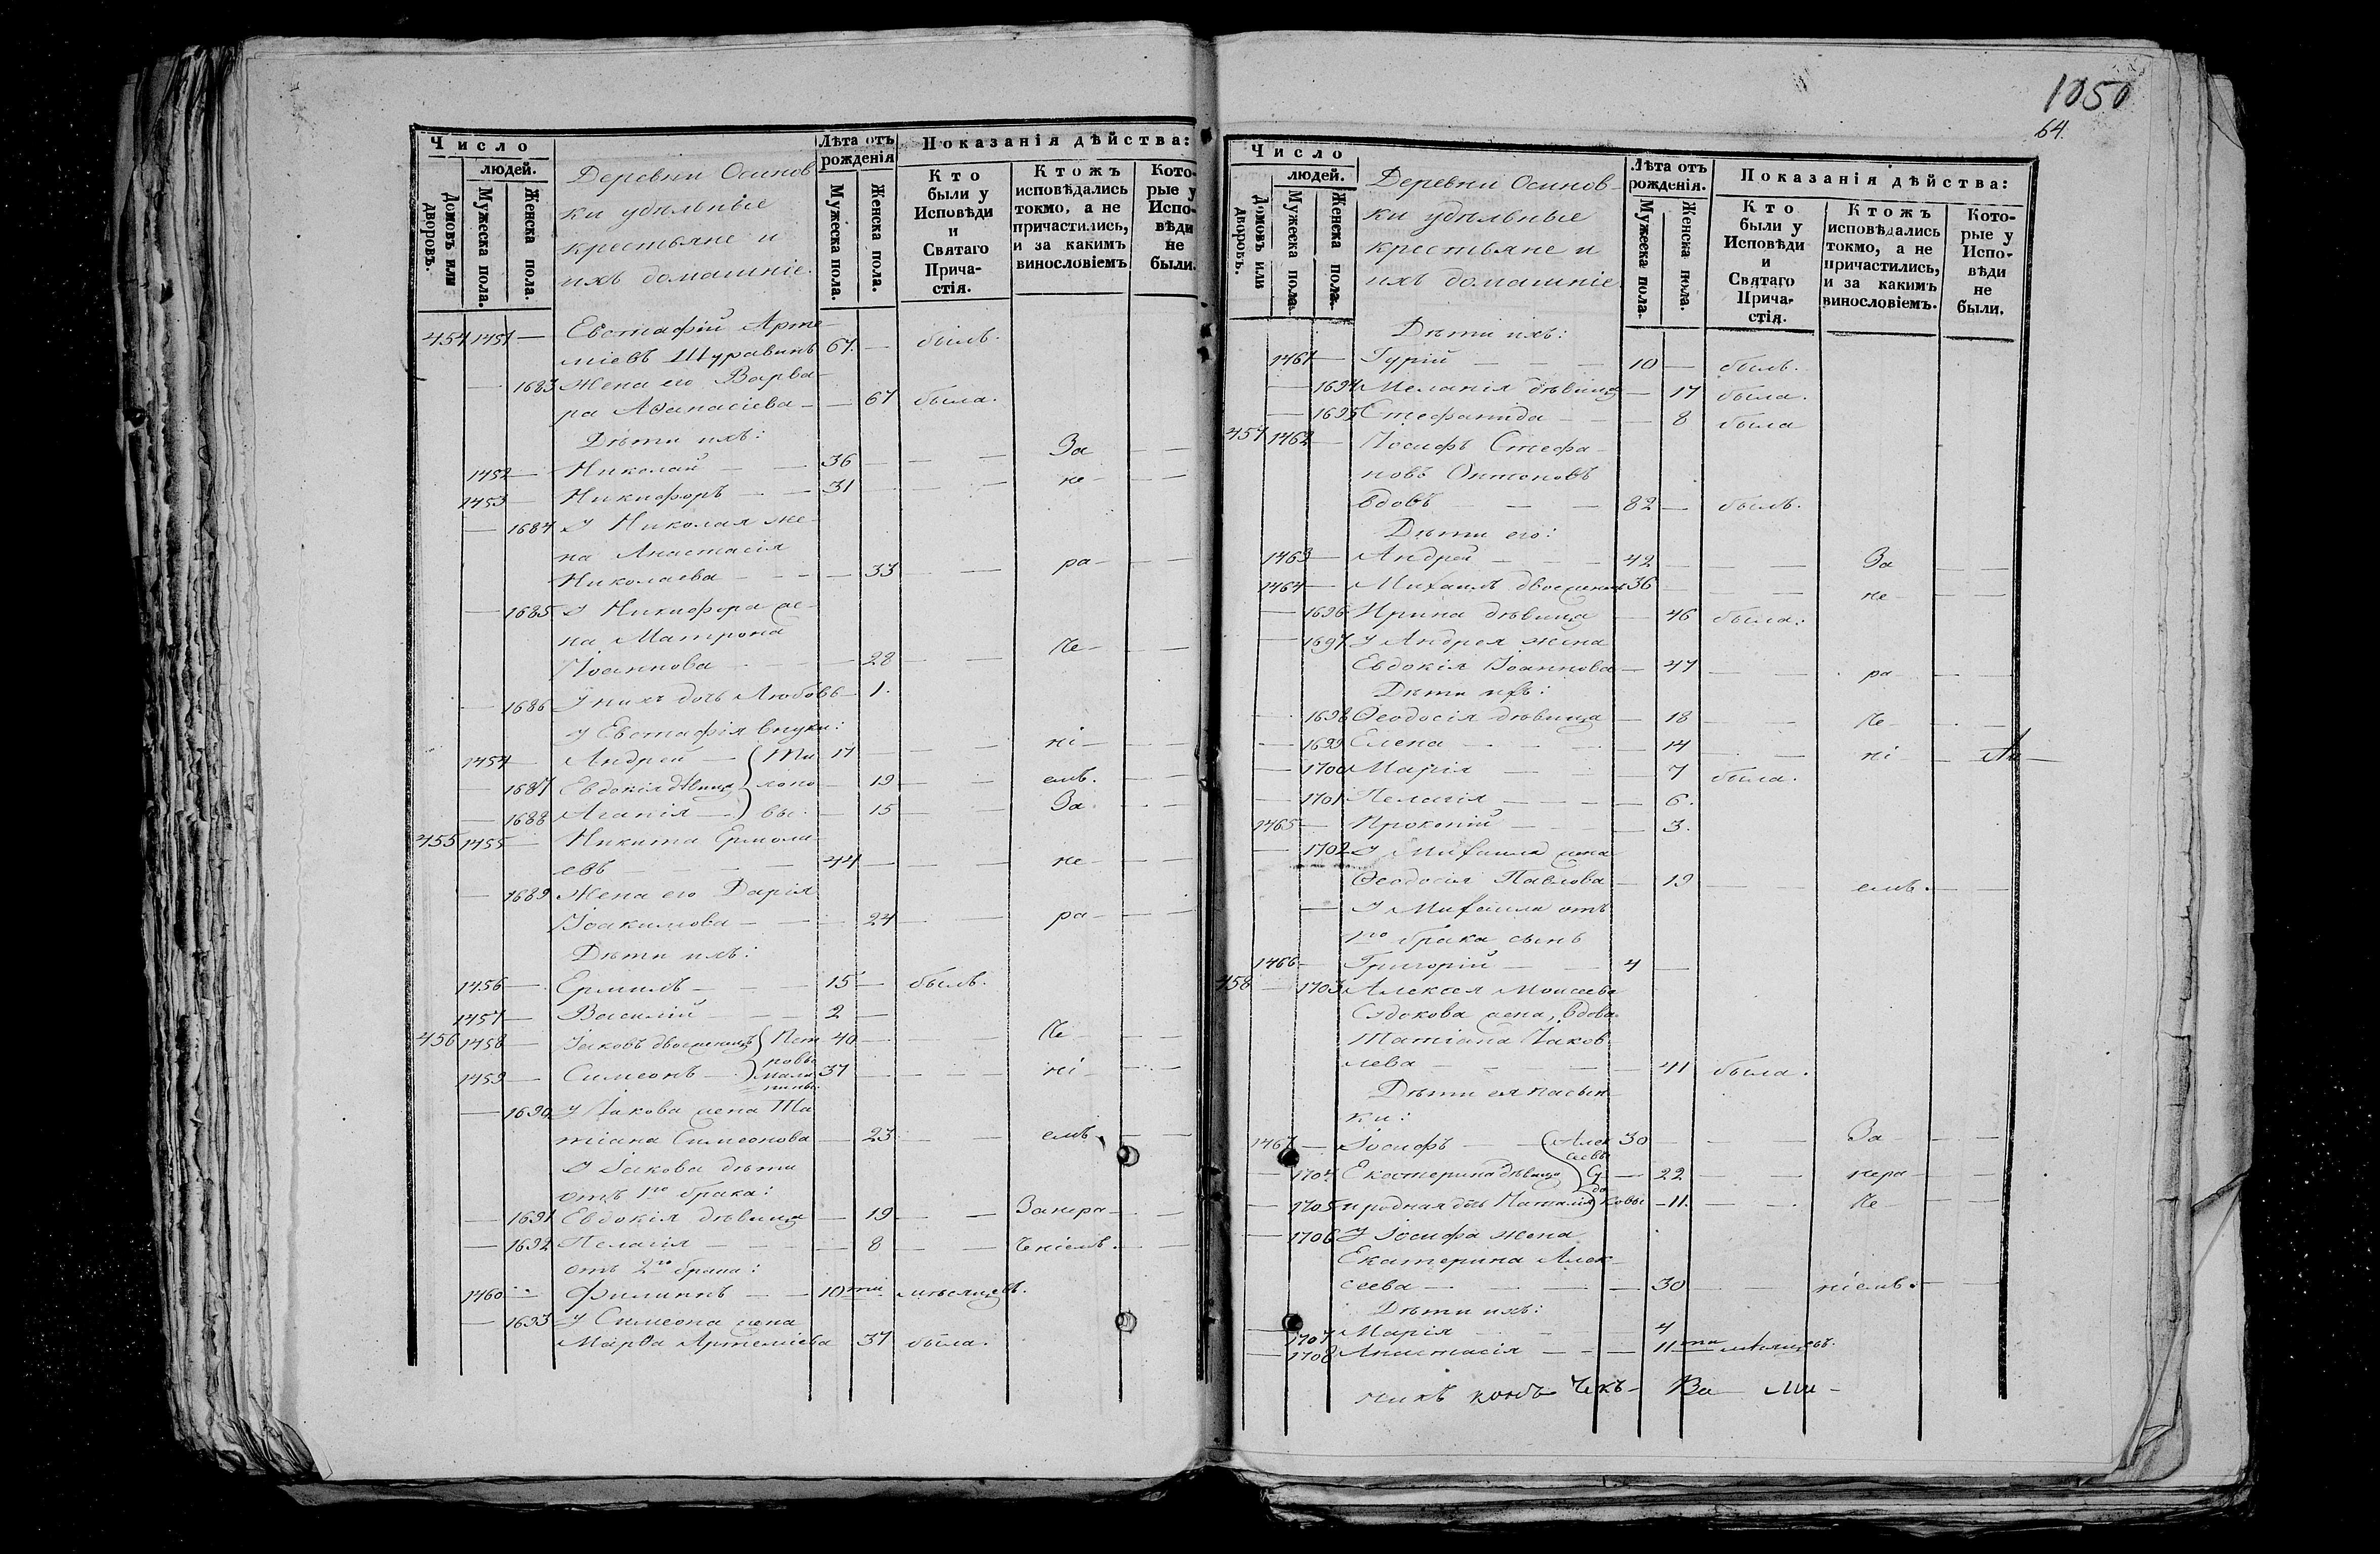 Число
людей.
Домовъ или дворовъ.
Мужеска пола.
Женска пола.
Деревни Осинов
ки удѣльные
крестьяне и
ихъ домашніе.
Лѣта отъ рожденія
Мужеска пола.
Женска пола.
Показанія дѣйства:
Кто были у Исповѣди и Святаго Причастія.
Ктожъ исповѣдались токмо, а не причастились, и за какимъ винословіемъ
Которые у Исповѣди не были.
454 1451 — Евстафій Арте-
міевъ Шуравинъ 67. — былъ.
— 1683 Жена его Варва-
ра Аѳанасіева — — 67 была.
Дѣти ихъ:
1452 — Николай — — 36 — — — За — —
1453 — Никифоръ — — 31 — — — не — —
— 1684 У Николая же-
на Анастасія
Николаева — — — 33 — — ра — —
— 1685 У Никифора же-
на Матрона
Іоаннова — — — 28 — — Че — —
— 1686 У нихъ дочь Любовь — 1.
у Евстафія внуки:
1454 — Андрей — (Ти 17 — — — ні — —
— 1687 Евдокія дѣвица хоно — 19 — — емъ. — —
— 1688 Агапія —) вы. — 15 — — За. — —
455 1455 — Никита Ермола-
евъ — — — 44 — — — не — —
— 1689 Жена его Дарія
Іоакимова — — — 24 — — ра — —
Дѣти ихъ:
1456 — Ермилъ — — — 15 — былъ.
1457 — Василій — — — 2 —
456 1458 — Іаковъ двоеженецъ (Пет 40 — — — Че — —
ровы
1459 — Симеонъ —) Мали 37 — — — ні — —
нины.
— 1690 У Іакова жена Та
тіана Симеонова — 23 — — емъ. — —
У Іакова дѣти
отъ 1го брака:
— 1691 Евдокія дѣвица — 19 — — Занера — —
— 1692 Пелагія — — — 8 — — Ченіемъ. — —
отъ 2го брака:
1460 — Филиппъ — — 10ти мѣсяцевъ.
— 1693 У Симеона жена
Марѳа Артеміева 37 была.
1050
64.
Число
людей.
Домовъ или дворовъ.
Мужеска пола.
Женска пола.
Деревни Осинов-
ки удѣльные
крестьяне и
ихъ домашніе
Лѣта отъ рожденія.
Мужеска пола.
Женска пола.
Показанія дѣйства:
Кто были у Исповѣди и Святаго Причастія.
Ктожъ исповѣдались токмо, а не причастились, и за какимъ винословіемъ.
Которые у Исповѣди не были.
Дѣти ихъ:
1461 — Гурій — — — 10 — былъ.
— 1694 Меланія дѣвица — 17 была.
— 1695 Стефанида — — — 8 была
457 1462 — Іосифъ Стефа
новъ Октоновъ
вдовъ — — — 82 — былъ.
Дѣти его:
1463 — Андрей — — — 42 — — — За — —
1464 — Михаилъ двоеженецъ 36 — — — не — —
— 1696 Ирина дѣвица — 46 была.
— 1697 У Андрея жена
Евдокія Іоаннова — 47 — — ра — —
Дѣти ихъ:
— 1698 Ѳеодосія дѣвица — 18 — — Че — —
— 1699 Елена — — — 14 — — ні —
— 1700 Марія — — — 7 была.
— 1701 Пелагія — — — 6.
1465 — Прокопій — — 3.
— 1702 У Михаила жена
Ѳеодосія Павлова — 19 — — емъ. — —
— У Михаила отъ
1го брака сынъ
1466 — Григорій — — 4 —
458 — 1703 Алексея Моисеева
Судокова жена, вдова
Матіана Іаков
лева — — — 41 была.
Дѣти ея пасын-
ки:
1467 — Іосифъ — — (Алек 30 — — — За — —
сѣевы
— 1704 Екатерина дѣвица Су — 22 — — нера — —
до
— 1705 и родная дочь Наталія) ковы — 11. — — Че — —
— 1706 У Іосифа жена
Екатерина Алек-
сеева — — — 30 — — ніемъ. — —
Дѣти ихъ:
— 1707 Марія — — — 4
— 1708 Анастасія — — — 11ти мѣсяцевъ.